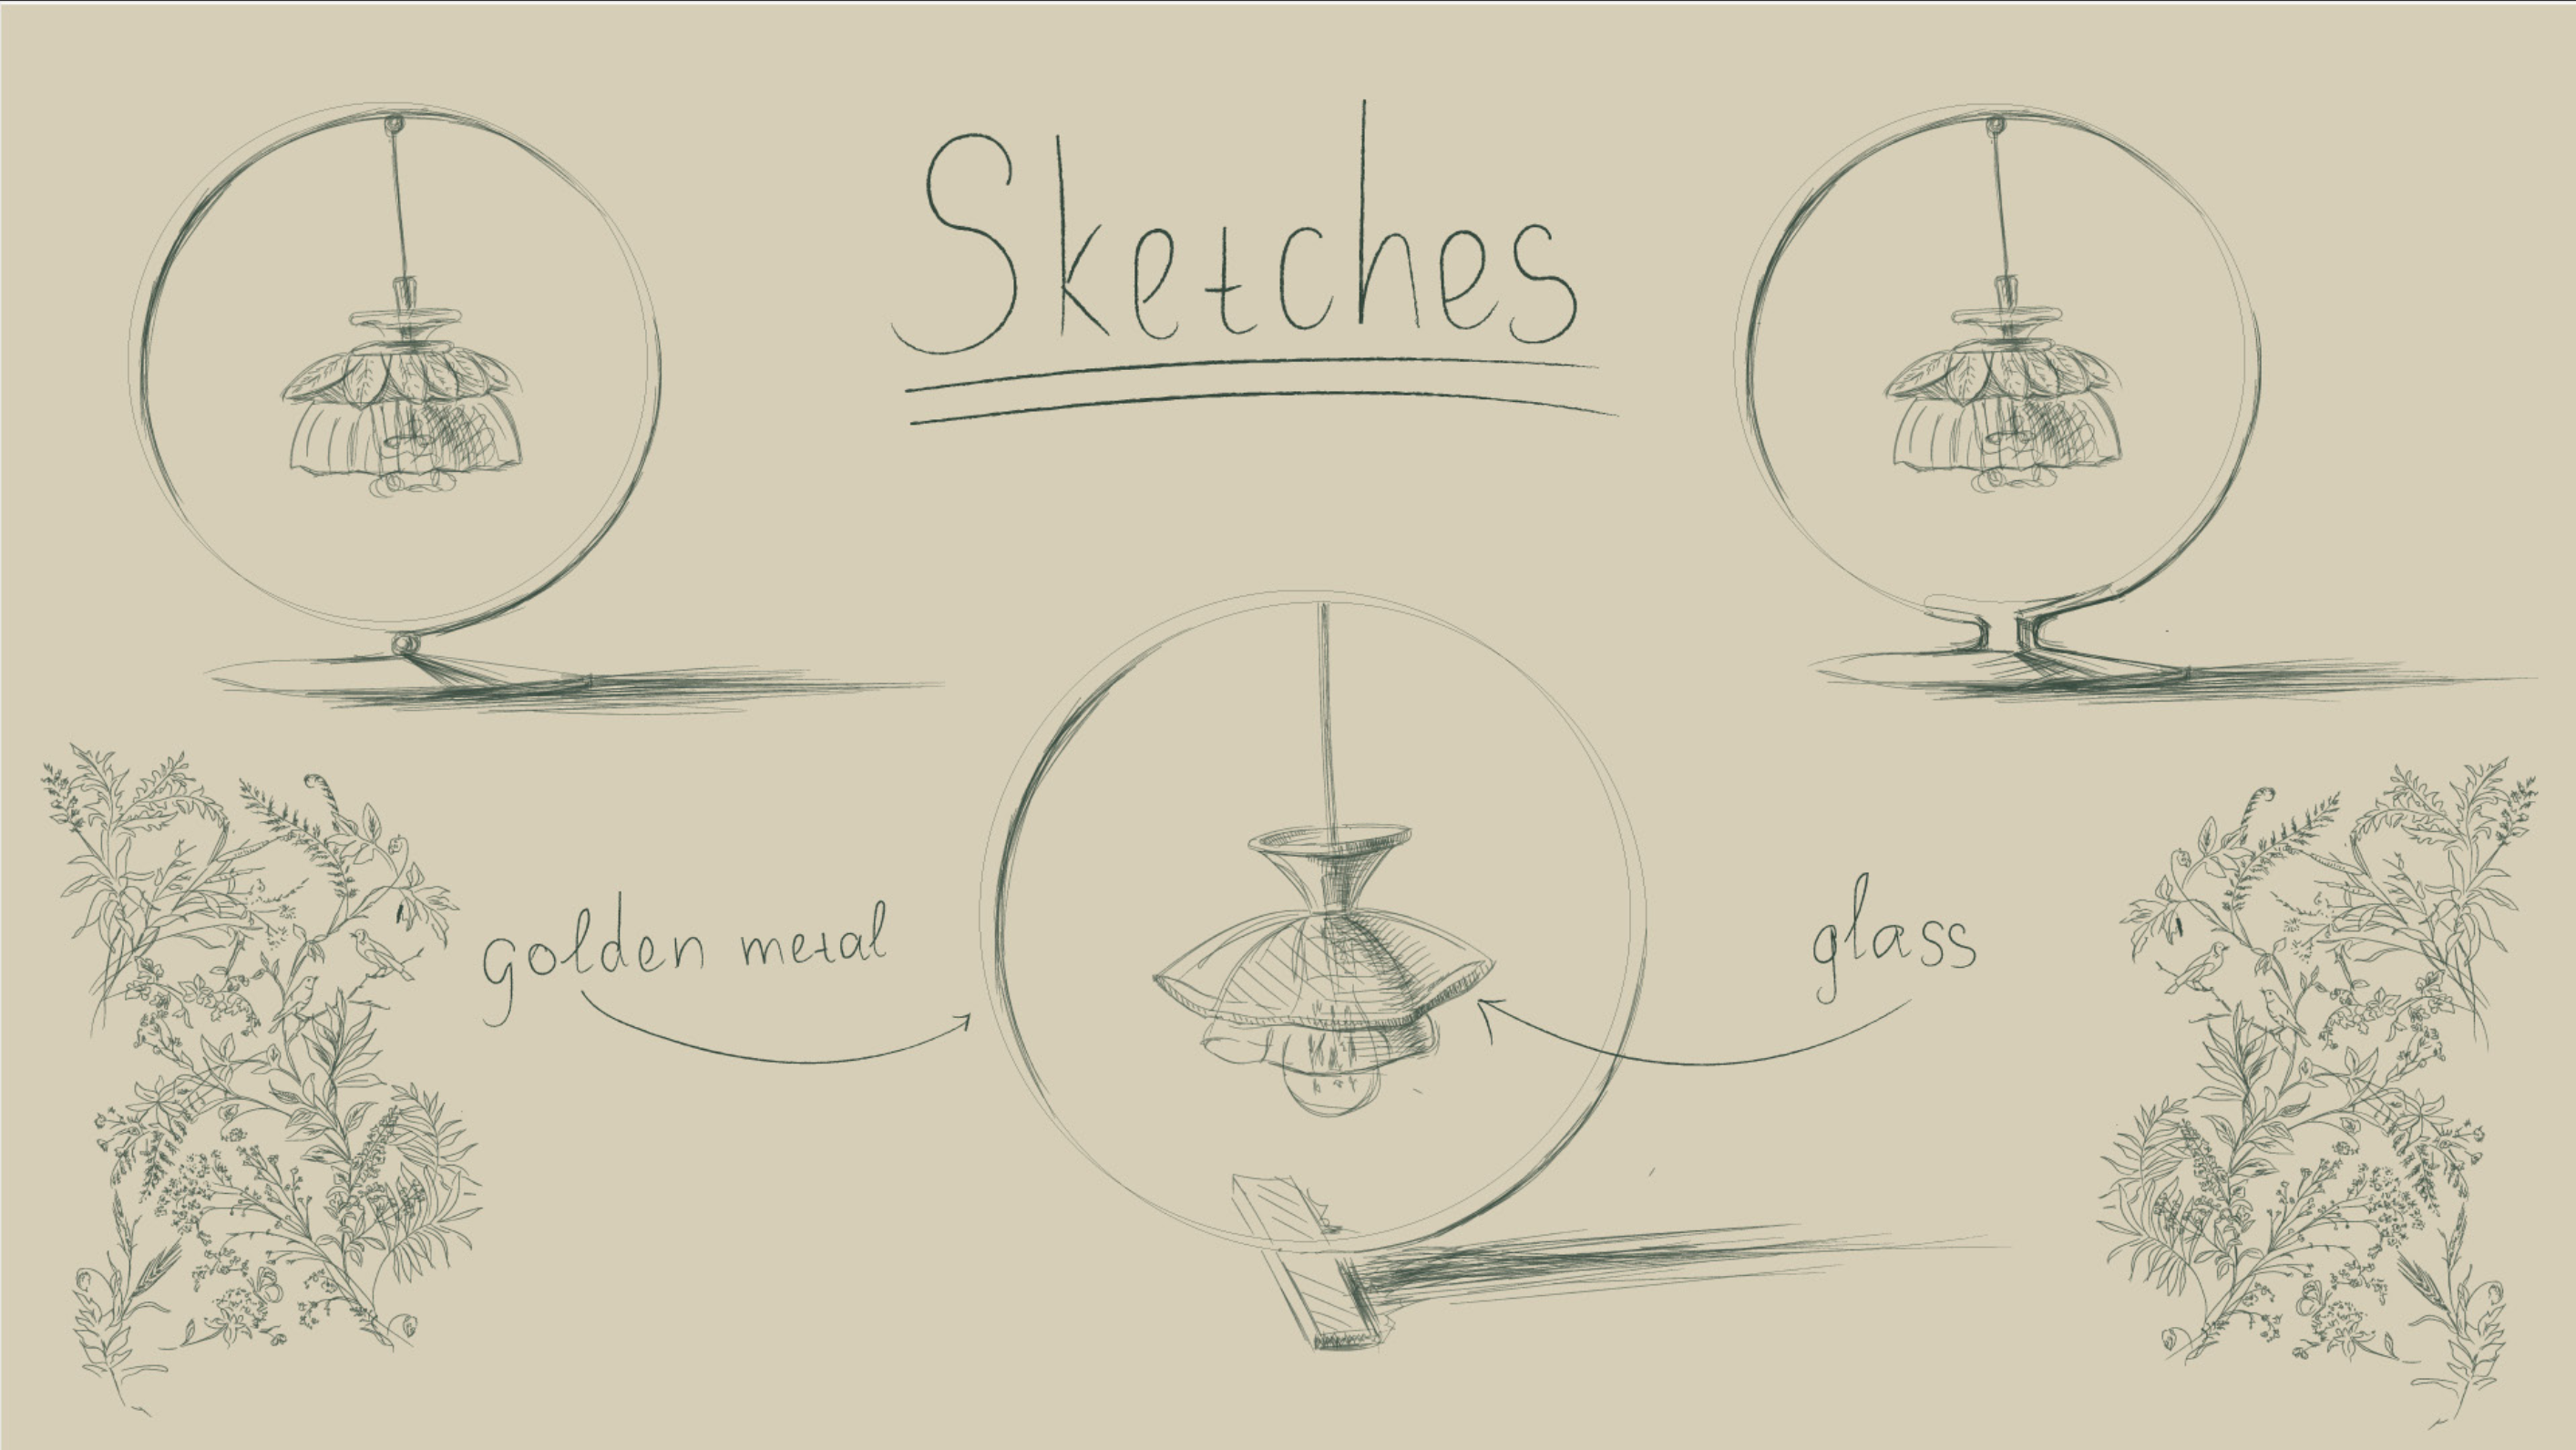 Sketches
golden metal
glass